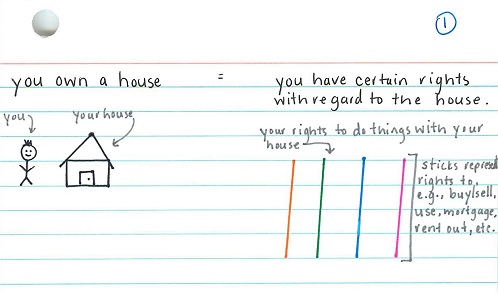 1
you own a house = you have certain rights
with regard to the house.
you
your house
your rights to do things with your
house
sticks represent
rights to,
e.g., buy/sell,
use, mortgage,
rent out, etc.